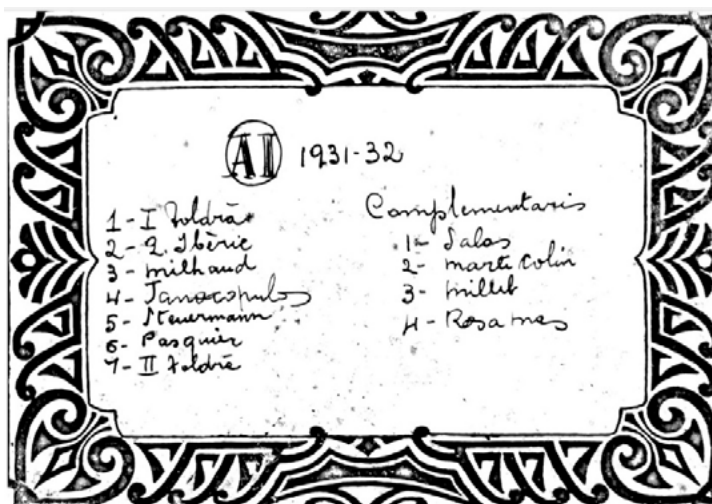 AI 1931-32
1 - I Toldrà
2 - Q. Ibèric
3 - Milhaud
4 - Janacopulos
5 - Steuermann
6 - Pasquier
7 - II Toldrà
Complementaris
1 - Salas
2 - Marti Colin
3 - Millet
4 - Rosa mas